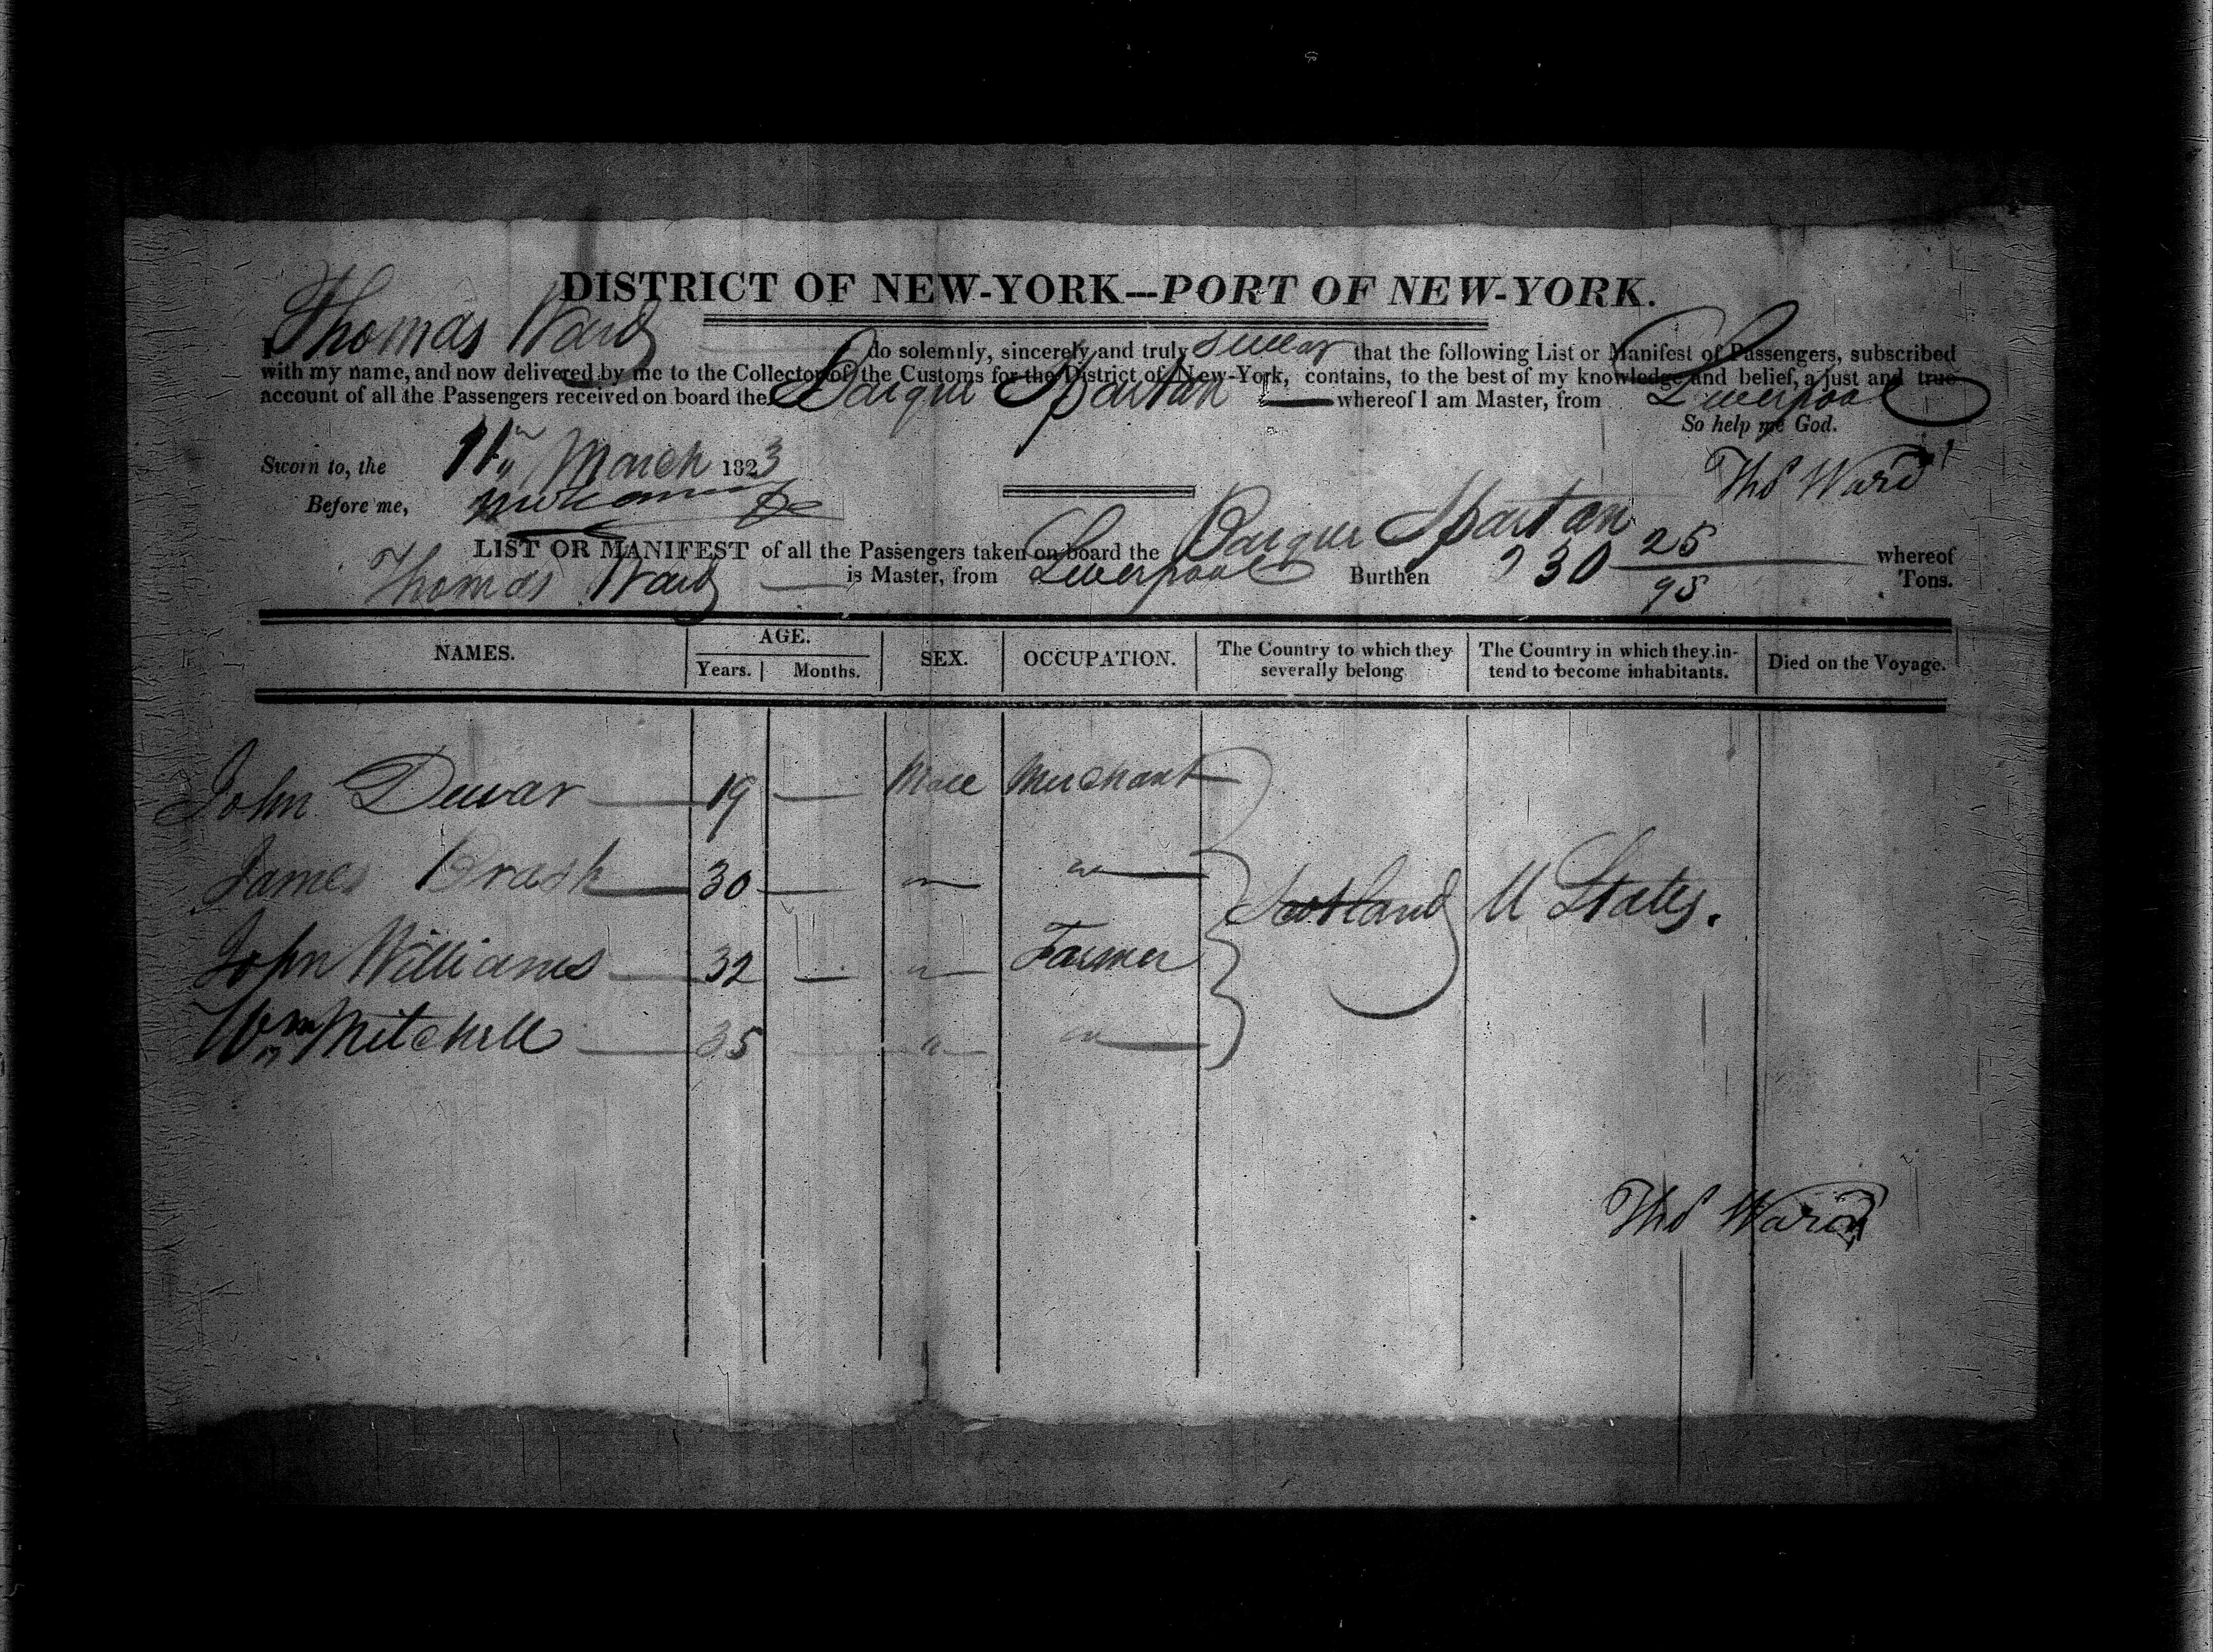 DISTRICT OF NEW-YORK---PORT OF NEW-YORK.
I Thomas Ward do solemnly, sincerely and truly swear that the following List or Manifest of Passengers, subscribed
with my name, and now delivered by me to the Collector of the Customs for the District of New-York, contains, to the best of my knowledge and belief, a just and true
account of all the Passengers received on board the Barque Spartan whereof I am Master, from Liverpool
So help me God.
Sworn to, the 11th March 1823 Thos Ward
Before me,
LIST OR MANIFEST of all the Passengers taken on board the Barque Spartan whereof
Thomas Ward is Master, from Liverpool Burthen 230 25/95 Tons.
NAMES. AGE. SEX. OCCUPATION. The Country to which they severally belong The Country in which they intend to become inhabitants. Died on the Voyage.
Years. Months.
John Dewar 19 — Male Merchant
James Brash 30 — " "
Scotland U States.
John Williams 32 — " Farmer
Wm Mitchell 35 — " "
Thos Ward